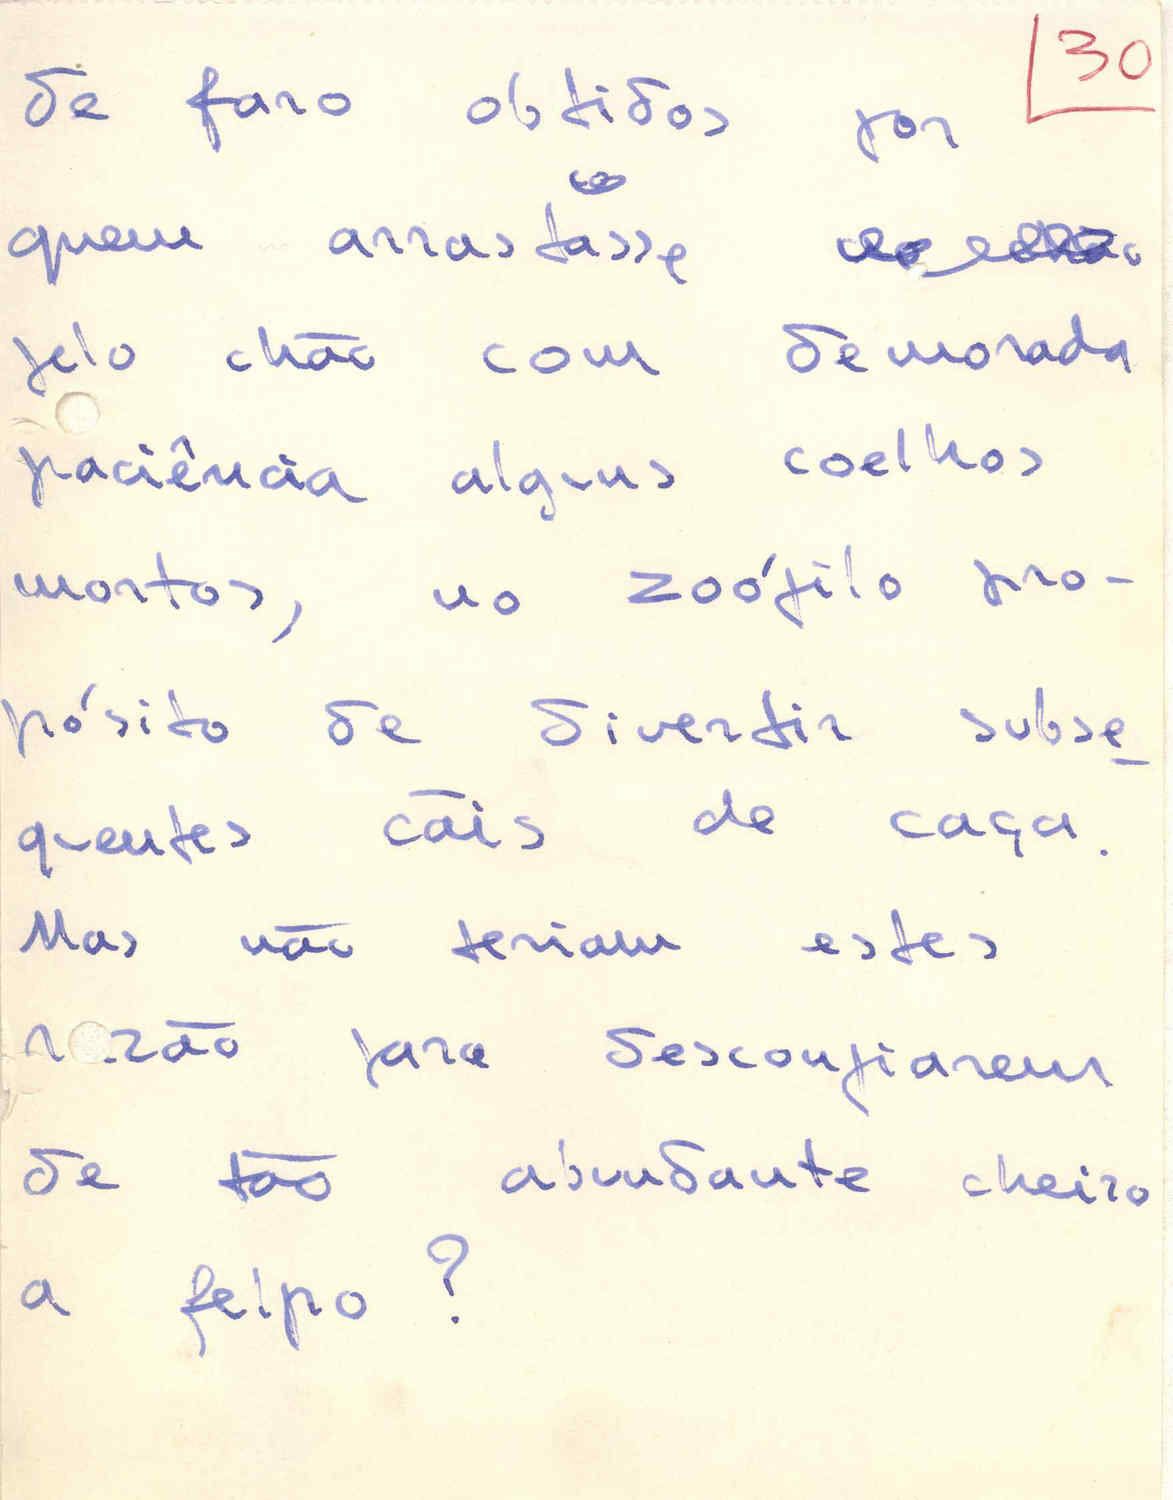 30
de faro obtidos por
quem arrastasse
pelo chão com demorada
paciência alguns coelhos
mortos, no zoófilo pro-
pósito de divertir subse
quentes cãis de caça.
Mas não teriam estes
razão para desconfiarem
de tão abundante cheiro
a felpo?